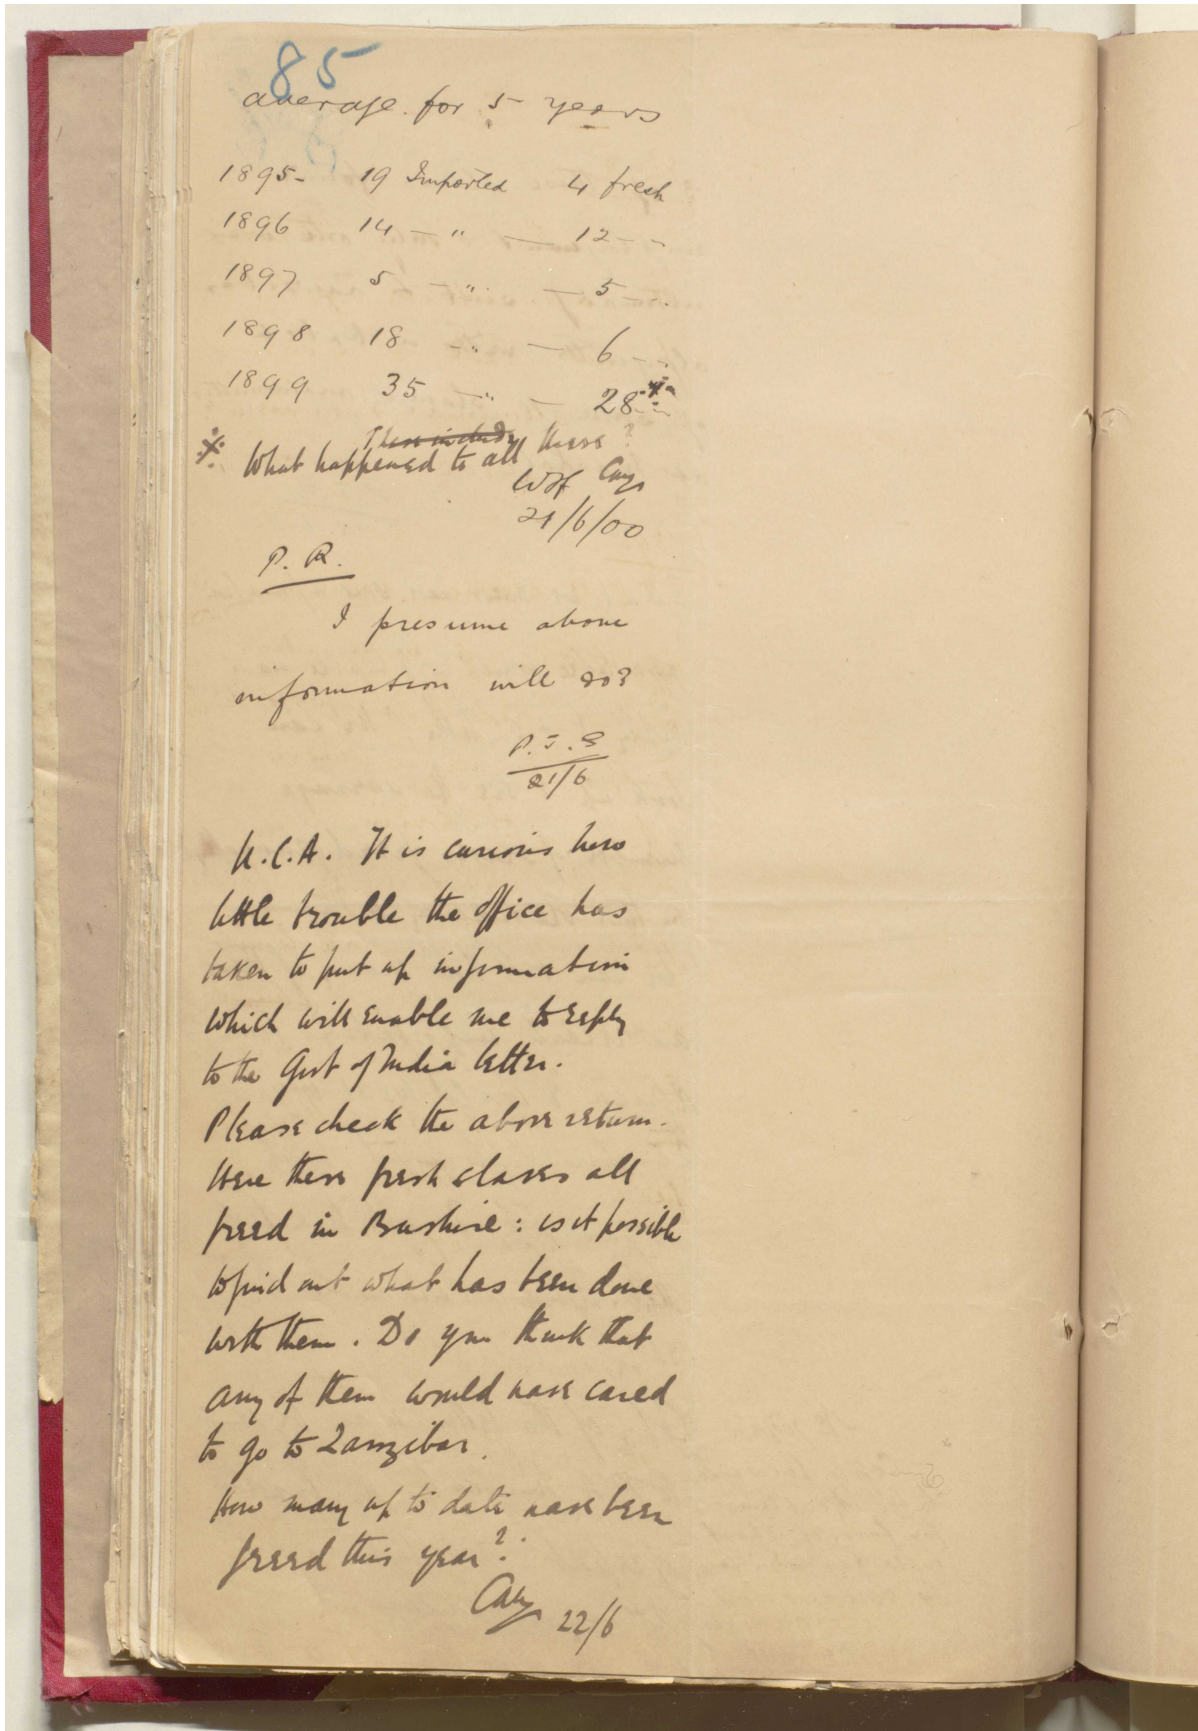 85
average for 5 years
1895- 19 Imported 4 fresh
1896 14 — " — 12 - -
1897 5 — " — 5 - -
1898 18 - " — 6 - -
1899 35 - " — 28
These include
What happened to all these?
21/6/00
P. R.
I presume above
information will do?
21/6
U.C.A. It is curious how
little trouble the office has
taken to put up information
which will enable me to reply
to the Govt of India letter.
Please check the above return.
Were these fresh slaves all
freed in Bushire: is it possible
to find out what has been done
with them. Do you think that
any of them would have cared
to go to Zanzibar.
How many up to date have been
freed this year?
22/6